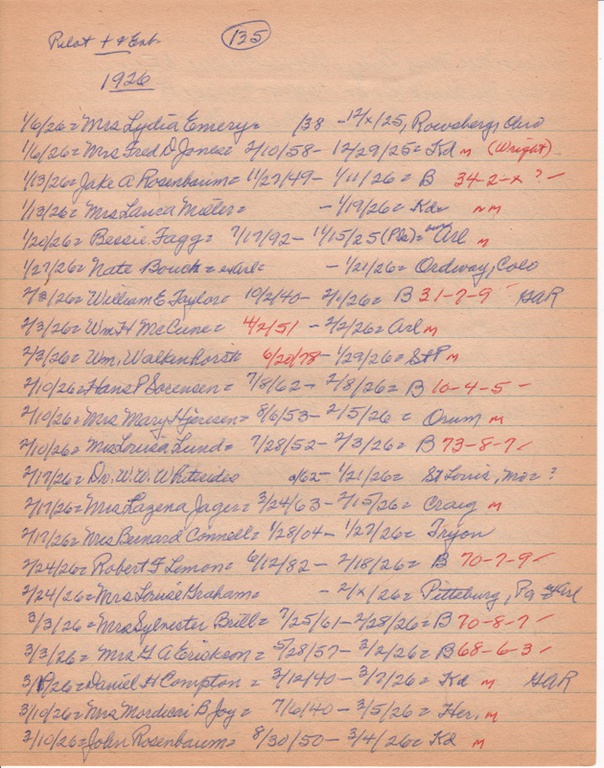 Pilot + & Ent. 135
1926
1/6/26 = Mrs Lydia Emery = /38 - 12/x/25, Rowsberg, Ohio
1/6/26 = Mrs Fred D Jones = 2/10/58 - 12/29/25 = Kd m (Wright)
1/13/26 = Jake A Rosenbaum = 11/27/49 - 1/11/26 = B 34-2-x ? ✓
1/13/26 = Mrs Laura Miller = - 1/19/26 = Kd = nm
1/20/26 = Bessie Fagg = 7/17/92 - 11/15/25 (Pbs) = Arl m
1/27/26 = Nate Bouck = exArl = - 1/21/26 = Ordway, Colo
2/3/26 = William E Taylor = 10/2/40 - 2/1/26 = B 31-7-9 ✓ GAR
2/3/26 = Wm H McCune = 4/2/51 - 2/2/26 = Arl m
2/3/26 = Wm. Walkenhorst 6/20/78 - 1/29/26 = St P m
2/10/26 = Hans P Sorensen = 7/8/62 - 2/8/26 = B 10-4-5 -
2/10/26 = Mrs Mary Hjeresen = 8/6/53 - 2/5/26 = Orum m
2/10/26 = Mrs Louisa Lund = 7/28/52 - 2/3/26 = B 73-8-7 ✓
2/17/26 = Dr. W.W. Whitesides /62 - 1/21/26 = St Louis, Mo = ?
2/17/26 = Mrs Lazena Jager = 3/24/63 - 2/15/26 = Craig m
2/17/26 = Mrs Bernard Connell = 1/28/04 - 1/27/26 = Tryon
2/24/26 = Robert F Lemon = 6/12/82 - 2/18/26 = B 70-7-9 ✓
2/24/26 = Mrs Louise Graham = - 2/x/26 = Pittsburg, Pa exArl
3/3/26 = Mrs Sylvester Brill = 7/25/61 - 2/28/26 = B 70-8-7 ✓
3/3/26 = Mrs G A Erickson = 5/28/57 - 3/2/26 = B 68-6-3 ✓
3/19/26 = Daniel H Compton = 3/12/40 - 3/7/26 = Kd m GAR
3/10/26 = Mrs Mordicai B Joy = 7/6/40 - 3/5/26 = Her, m
3/10/26 = John Rosenbaum = 8/30/50 - 3/4/26 = Kd m